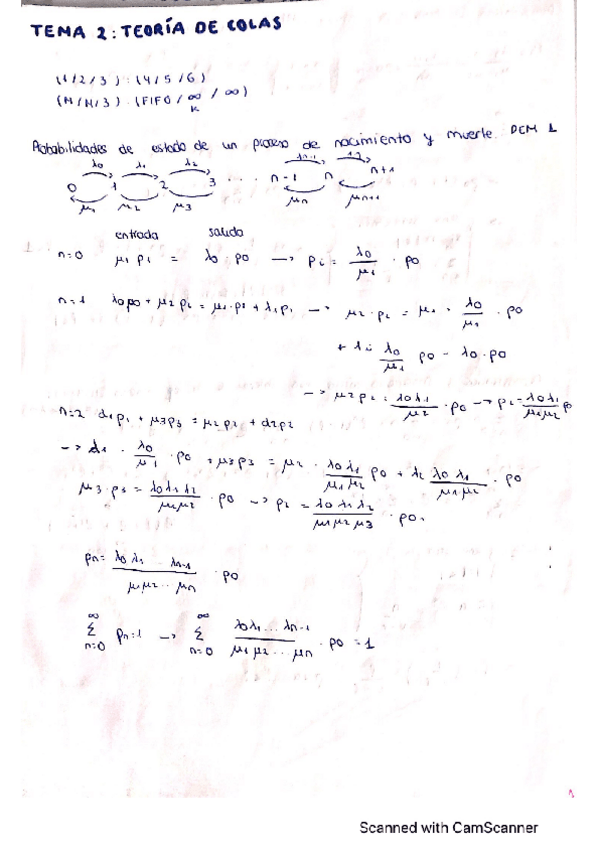 TEMA 2: TEORÍA DE COLAS
(1/2/3) : (4/5/6)
(M/M/3) : (FIFO/∞/∞)
K
Probabilidades de estado de un proceso de nacimiento y muerte. DEM 1
λ0 λ1 λ2 λn-1
0 1 2 3 ... n-1 n n+1
μ1 μ2 μ3 μn μn+1
entrada salida
n=0 μ1 p1 = λ0 · p0 → p1 = λ0/μ1 · p0
n=1 λ0p0 + μ2p2 = μ1·p1 + λ1p1 → μ2·p2 = μ1 · λ0/μ1 · p0
+ λ1 · λ0/μ1 p0 - λ0·p0
→ μ2p2 = λ0λ1/μ2 · p0 → p2 = λ0λ1/μ1μ2 p0
n=2 λ1p1 + μ3p3 = μ2p2 + λ2p2
→ λ1 · λ0/μ1 · p0 + μ3p3 = μ2 · λ0λ1/μ1μ2 p0 + λ2 λ0λ1/μ1μ2 · p0
μ3·p3 = λ0λ1λ2/μ1μ2 · p0 → p2 = λ0λ1λ2/μ1μ2μ3 · p0.
pn = λ0λ1...λn-1/μ1μ2...μn · p0
∞Σn=0 pn=1 → ∞Σn=0 λ0λ1...λn-1/μ1μ2...μn · p0 = 1
Scanned with CamScanner